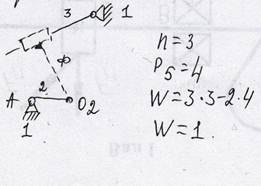 3
1
Ф
A
2
O2
1
n=3
P5=4
W=3·3-2·4
W=1.